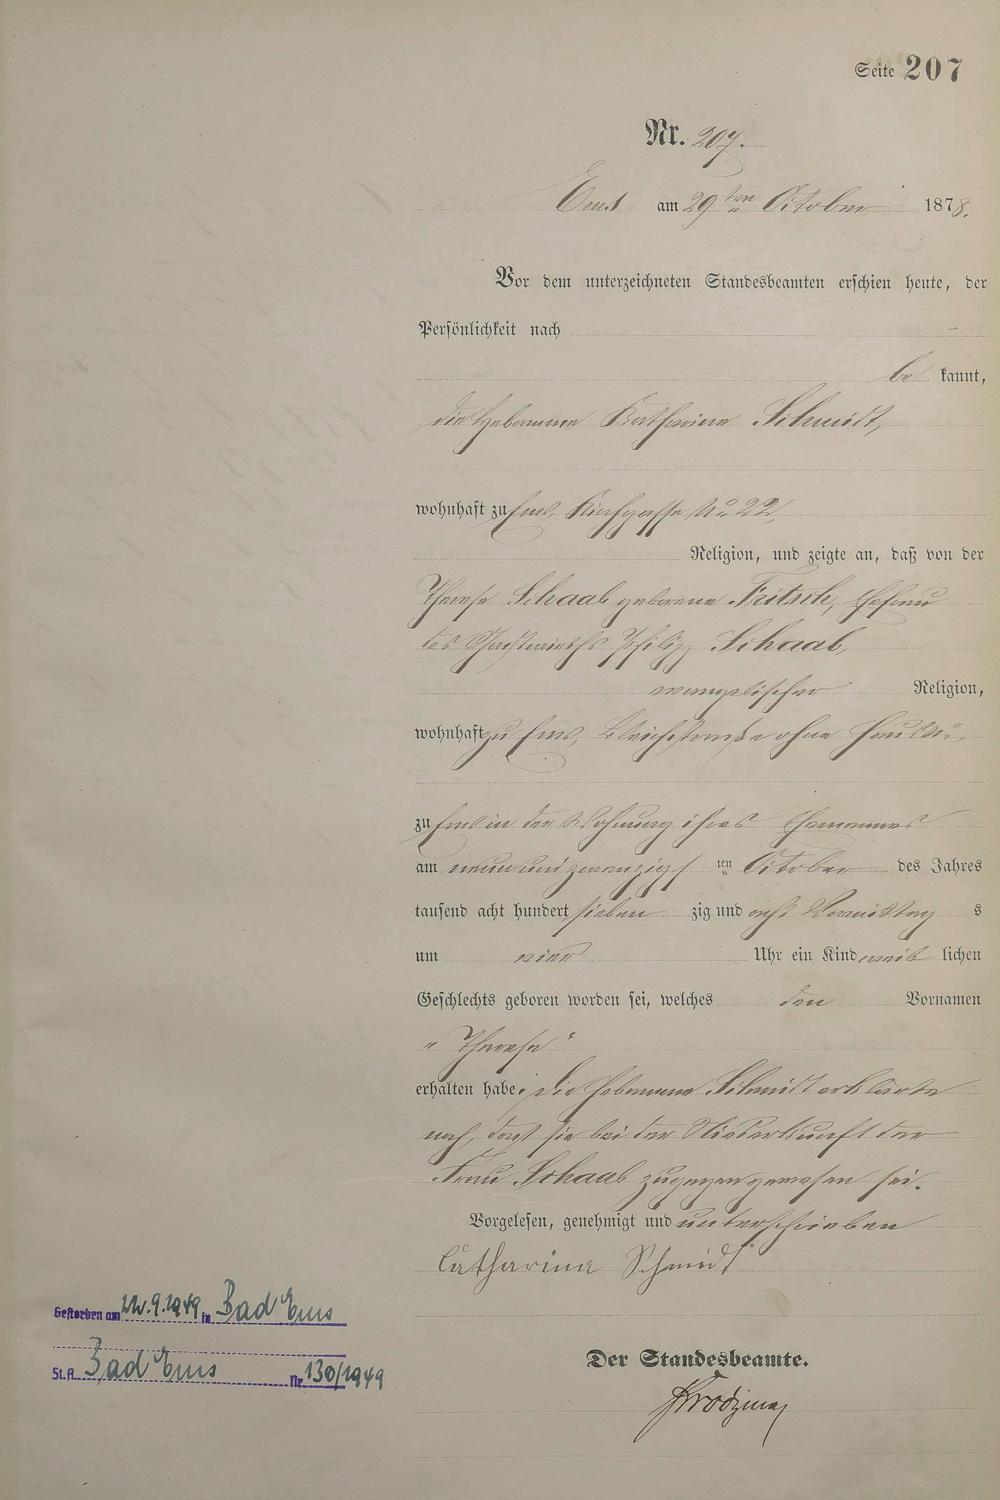 Seite 207
Nr. 207.
Ems am 29 ten October 1878.
Vor dem unterzeichneten Standesbeamten erschien heute, der
Persönlichkeit nach
be kannt,
die Hebamme Katharina Schmidt,
wohnhaft zu Ems, Kirchgasse No 22,
Religion, und zeigte an, daß von der
Therese Schaab geborene Fritsch, Ehefrau
des Gastwirths Philipp Schaab,
evangelischer Religion,
wohnhaft zu Ems, Bleichstraße ohne Haus No.,
zu Ems in der Wohnung ihres Ehemannes
am neun und zwanzigs ten October des Jahres
tausend acht hundert sieben zig und acht Vormittag s
um vier Uhr ein Kind weib lichen
Geschlechts geboren worden sei, welches den Vornamen
„Therese"
erhalten habe. Die Hebamme Schmidt erklärte
noch, daß sie bei der Niederkunft der
Frau Schaab zugegen gewesen sei.
Vorgelesen, genehmigt und unterschrieben
Catharina Schmidt
Der Standesbeamte.
Gestorben am 22.9.1949 in Bad Ems
St.A. Bad Ems Nr. 130/1949